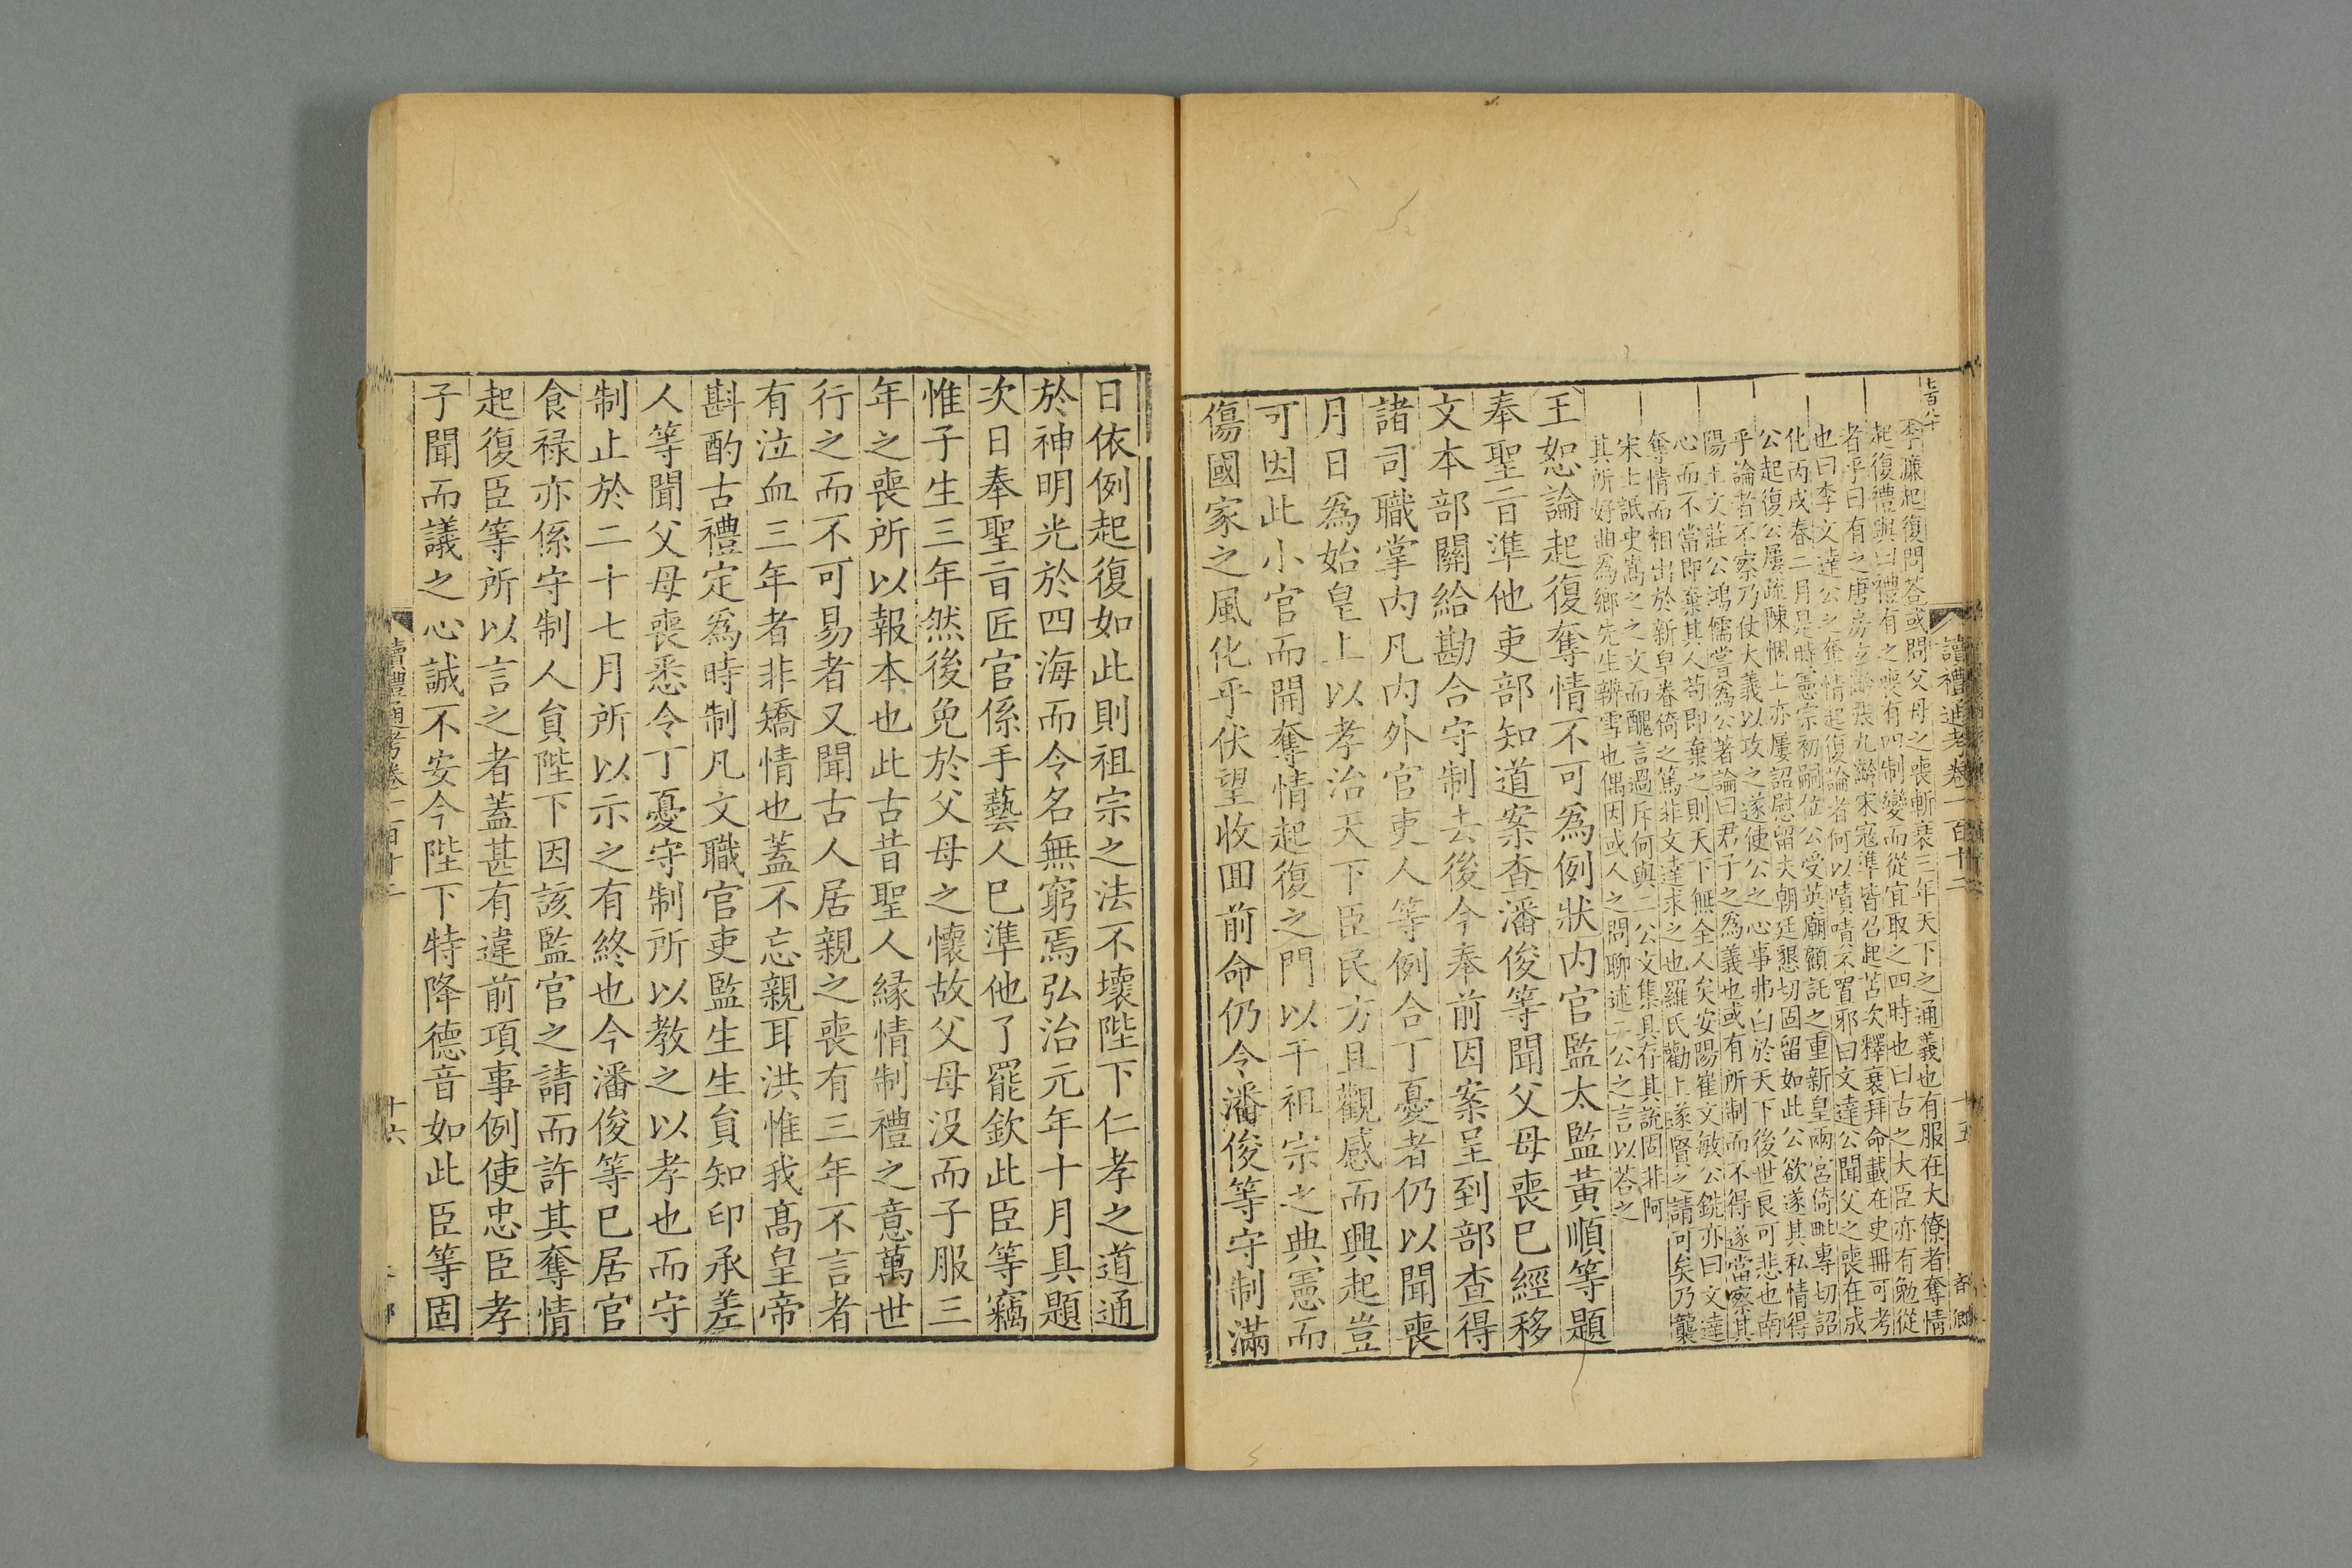 讀禮通考卷一百十二
十五
李濂起復問荅或問父母之喪斬衰三年天下之通義也有服在大僚者奪情
起復禮與曰禮有之喪有四制變而從宜取之四時也曰古之大臣亦有勉從
者乎曰有之唐房玄齡張九齡宋寇準皆召起苫次釋衰拜命載在史冊可考
也曰李文達公之奪情起復論者何以嘖嘖不置邪曰文達公聞父之喪在成
化丙戌春二月是時憲宗初嗣位公受英廟顧託之重新皇兩宮倚毗專切詔
公起復公屢疏陳悃上亦屢詔慰留夫朝廷懇切固留如此公欲遂其私情得
乎論者不察乃仗大義以攻之遂使公之心事弗白於天下後世良可悲也南
陽王文莊公鴻儒嘗為公著論曰君子之為義也或有所制而不得遂當察其
心而不當即棄其人苟即棄之則天下無全人矣安陽崔文敏公銑亦曰文達
奪情而相出於新皇眷倚之篤非文達求之也羅氏勸上遂賢之請可矣乃襲
宋士詆史嵩之之文而醜言過斥何與二公文集具存其說固非阿
其所好曲為鄉先生辨雪也偶因或人之問聊述二公之言以荅之
王恕論起復奪情不可為例狀内官監太監黃順等題
奉聖旨準他吏部知道案查潘俊等聞父母喪已經移
文本部關給勘合守制去後今奉前因案呈到部查得
諸司職掌内凡内外官吏人等例合丁憂者仍以聞喪
月日為始皇上以孝治天下臣民方且觀感而興起豈
可因此小官而開奪情起復之門以干祖宗之典憲而
傷國家之風化乎伏望收囬前命仍令潘俊等守制滿
日依例起復如此則祖宗之法不壞陛下仁孝之道通
於神明光於四海而令名無窮焉弘治元年十月具題
次日奉聖旨匠官係手藝人已準他了罷欽此臣等竊
惟子生三年然後免於父母之懷故父母沒而子服三
年之喪所以報本也此古昔聖人緣情制禮之意萬世
行之而不可易者又聞古人居親之喪有三年不言者
有泣血三年者非矯情也蓋不忘親耳洪惟我高皇帝
斟酌古禮定為時制凡文職官吏監生生員知印承差
人等聞父母喪悉令丁憂守制所以教之以孝也而守
制止於二十七月所以示之有終也今潘俊等已居官
食祿亦係守制人員陛下因該監官之請而許其奪情
起復臣等所以言之者蓋甚有違前項事例使忠臣孝
子聞而議之心誠不安今陛下特降德音如此臣等固
讀禮通考卷一百十二
十六